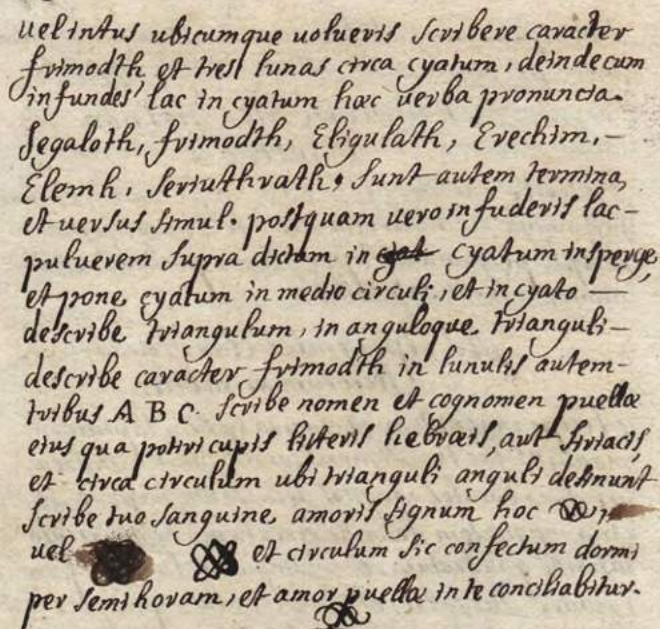 uel intus ubicumque uolueris scribere caracter
frimodth et tres lunas circa cyatum, deinde cum
infundes lac in cyatum hæc uerba pronuncia.
Segaloth, frimodth, Eligulath, Erechim,-
Elemh, seriuthrath, sunt autem termina,
et uersus simul. postquam uero infuderis lac-
puluerem supra dictam in cyat cyatum insperge,
et pone cyatum in medio circuli, et in cyato —
describe triangulum, in anguloque trianguli-
describe caracter frimodth in lunulis autem-
tribus A B C. scribe nomen et cognomen puellæ
eius qua potiri cupis litteris hebræis, aut siriacis,
et circa circulum ubi trianguli anguli desinunt
scribe tuo sanguine amoris signum hoc
uel et circulum sic confectum dormi
per semihoram, et amor puellæ in te conciliabitur.